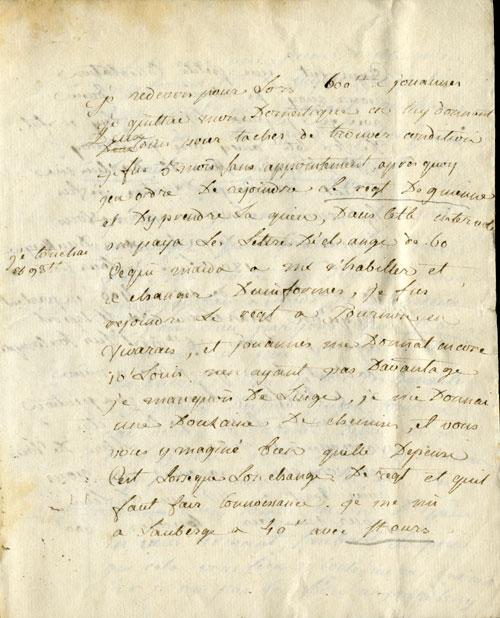 je redevois pour Lors 600ᵗᵗ a jouannes
je quittai mon Domestique en luy donnant
Deux Louis pour tacher de trouver condition
je fus 5 mois sans appointement, apres quoy
jeu ordre De rejoindre Le regt De guienne
et Dy prendre La quien, Dans Cette intervale
on paya Les Lettre D'échange de 60
je touchai
et 98ᵗᵗ
Ce qui maida a me r'habiller et
a changer Duniformes, je fus
rejoindre Le regt a Tournon en
Vivarais, et jouannes me Donnat encore
10 Louis, nen ayant pas Davantage
je manquois De Linge, je me Donnai
une Douzaine De chemises, et vous
vous ymaginé bien quelle Depense
Cest Lorsque Lon change De regt et quil
faut fair Connoissance. je me mis
a Lauberge a 40ᵗᵗ avec St ours